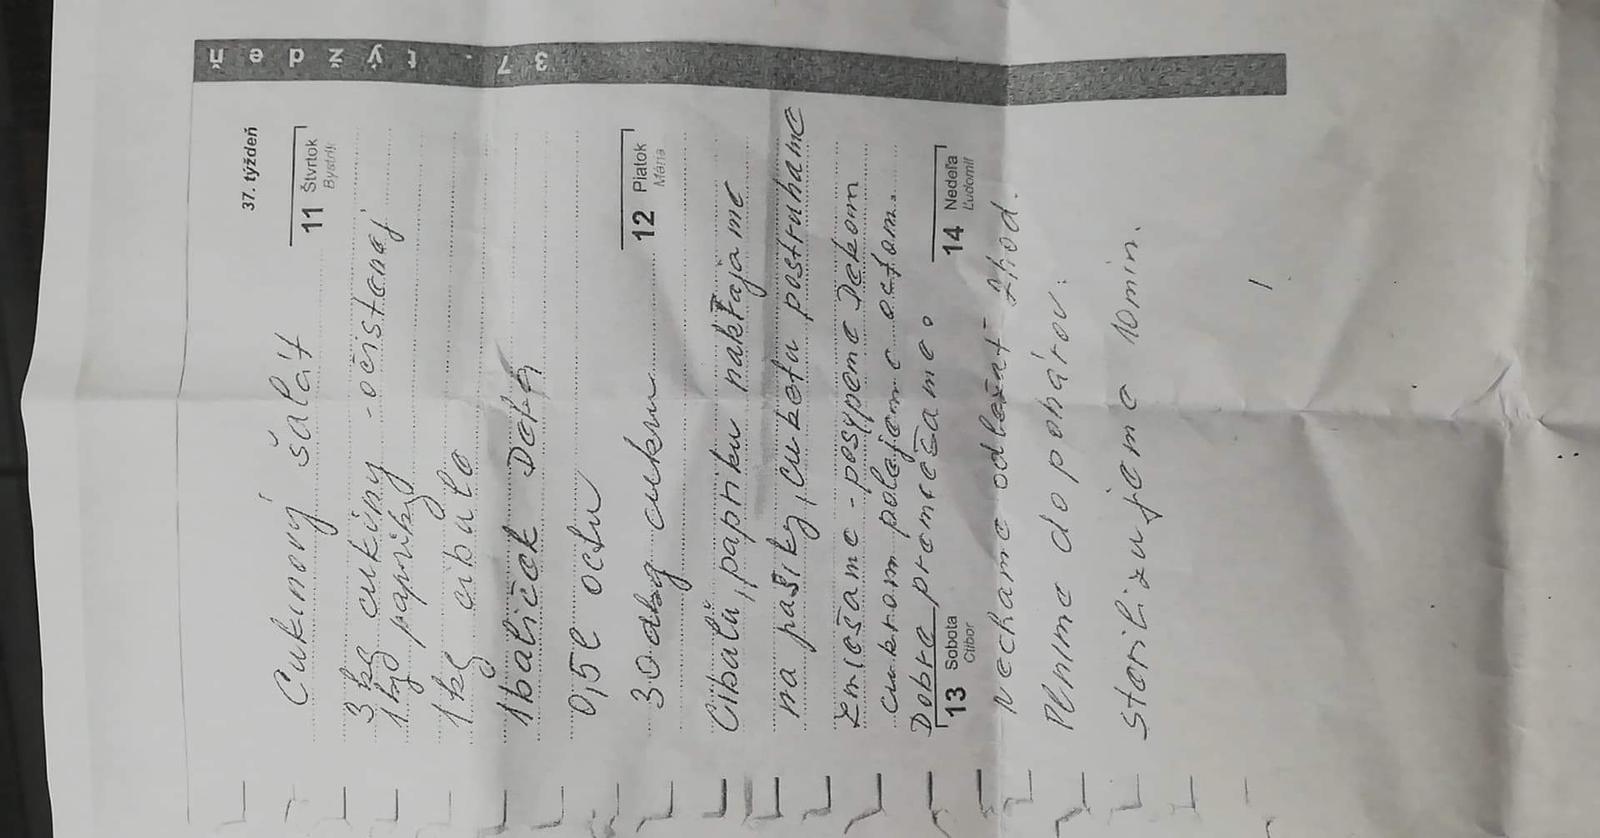 37. týždeň
37. týždeň
11 Štvrtok
Bystrík
Cukinový šalát
3 kg cukiny - očistenej
1 kg papriky
1 kg cibule
1 balíček Deka
0,5l octu
12 Piatok
Mária
30 dkg cukru
Cibuľu, papriku nakrájame
na pásiky, cuketu postruhame
zmiešame - posypeme Dekom
cukrom polejeme octom.
Dobre premiešame.
13 Sobota
Ctibor
14 Nedeľa
Ľudomil
Nechame odležať - 2 hod.
Plnime do pohárov.
Sterilizujeme 10 min.